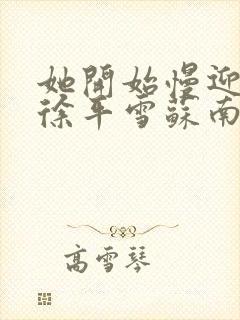 她開始慢迎
徐平雪蘇南
高雪琴